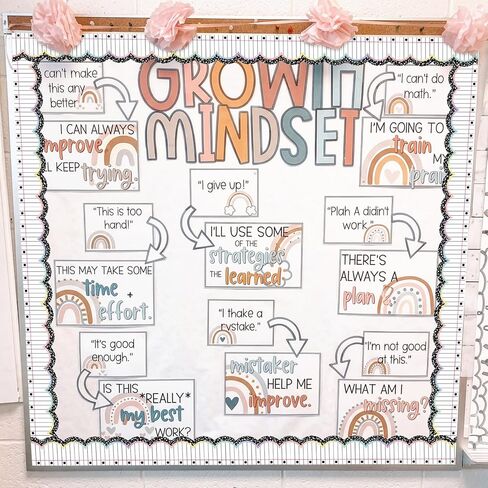 GROWTH
MINDSET
can't make
this any
better.
I CAN ALWAYS
mprove
LL KEEP
trying.
"I can't do
math."
I'M GOING TO
train M
prai
"I give up!"
I'LL USE SOME
OF THE
strategies
THE learned.
"This is too
hand!"
THIS MAY TAKE SOME
time +
effort.
"Plah A didin't
work."
THERE'S
ALWAYS A
plan
"It's good
enough."
IS THIS *REALLY*
my best
WORK?
"I thake a
rystake."
mistaker
HELP ME
improve.
"I'm not good
at this."
WHAT AM I
missing?